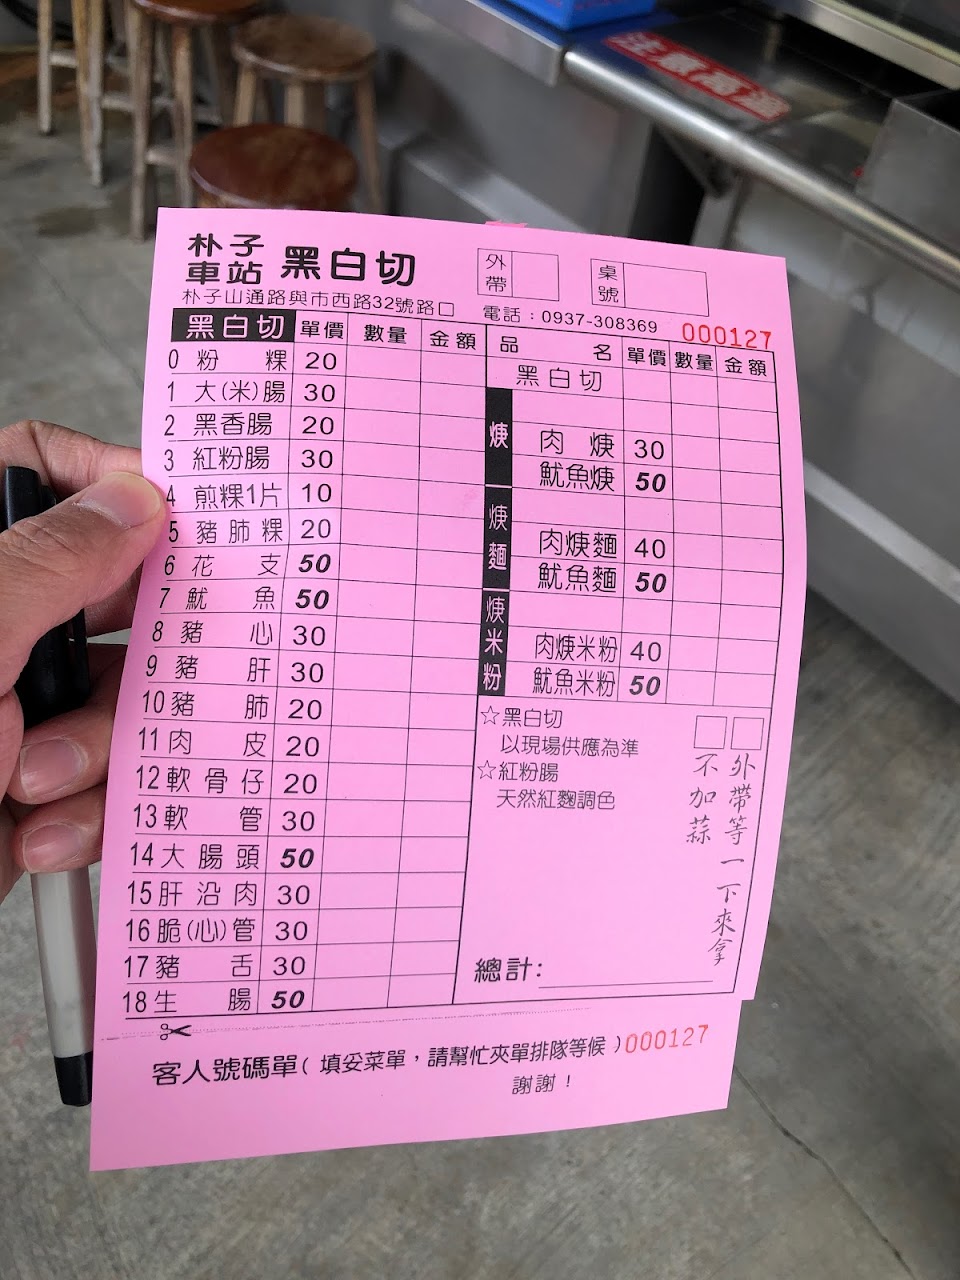 注意高溫
朴子車站 黑白切
外帶 桌號
朴子山通路與市西路32號路口
電話：0937-308369 000127
黑白切 單價 數量 金額
0 粉粿 20
1 大(米)腸 30
2 黑香腸 20
3 紅粉腸 30
4 煎粿1片 10
5 豬肺粿 20
6 花支 50
7 魷魚 50
8 豬心 30
9 豬肝 30
10 豬肺 20
11 肉皮 20
12 軟骨仔 20
13 軟管 30
14 大腸頭 50
15 肝沿肉 30
16 脆(心)管 30
17 豬舌 30
18 生腸 50
品名 單價 數量 金額
黑白切
焿
肉焿 30
魷魚焿 50
焿麵
肉焿麵 40
魷魚麵 50
焿米粉
肉焿米粉 40
魷魚米粉 50
☆黑白切
以現場供應為準
☆紅粉腸
天然紅麴調色
外帶等一下來拿
不加蒜
總計：
客人號碼單(填妥菜單，請幫忙夾單排隊等候) 000127
謝謝！